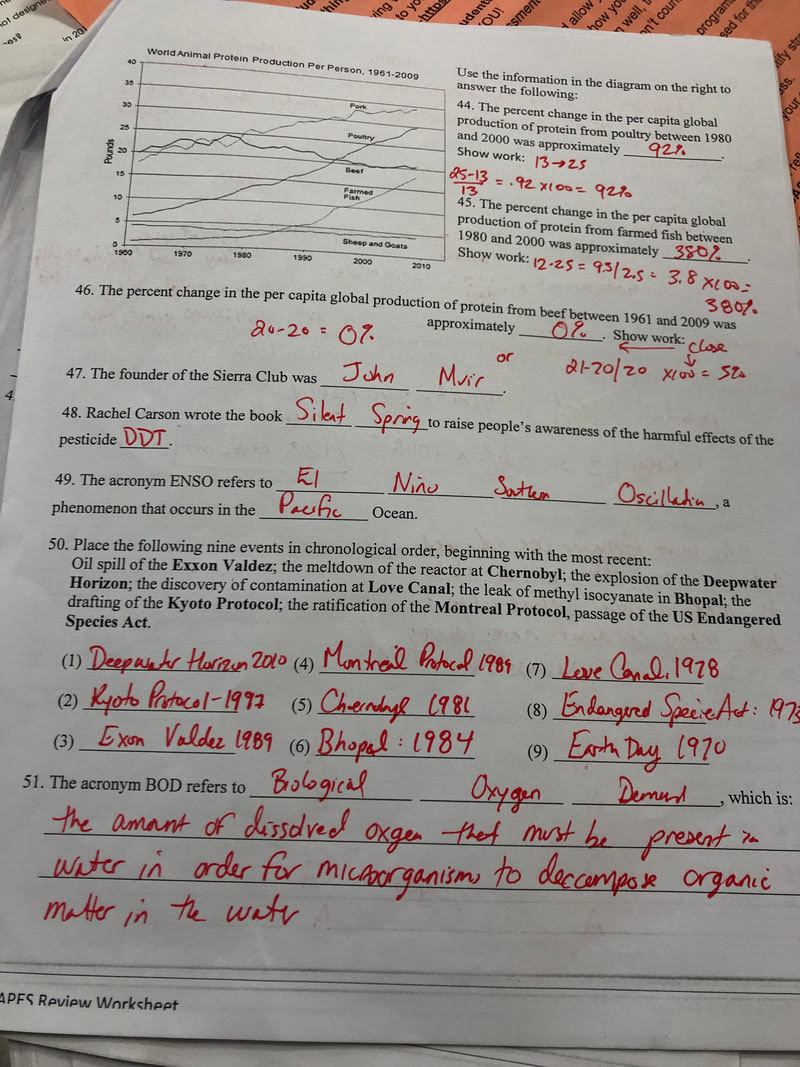 not designe
nes?
in 20
ving
to yo
https
udents
YOU!
sment
allow
how you
n well,
n't coun
program
sed for th
World Animal Protein Production Per Person, 1961-2009
40
35
30
25
20
15
10
5
0
Pounds
Pork
Poultry
Beef
Farmed
Fish
Sheep and Goats
1960 1970 1980 1990 2000 2010
Use the information in the diagram on the right to
answer the following:
44. The percent change in the per capita global
production of protein from poultry between 1980
and 2000 was approximately 92%.
Show work: 13→25
25-13
13
= .92 x100 = 92%
45. The percent change in the per capita global
production of protein from farmed fish between
1980 and 2000 was approximately 380%.
Show work: 12-25 = 9.5/2.5 = 3.8 x100 =
380%
46. The percent change in the per capita global production of protein from beef between 1961 and 2009 was
approximately 0%. Show work:
20-20 = 0%
close
or
21-20/20 x100 = 5%
47. The founder of the Sierra Club was John Muir.
48. Rachel Carson wrote the book Silent Spring to raise people's awareness of the harmful effects of the
pesticide DDT.
49. The acronym ENSO refers to El Niño Southern Oscillation, a
phenomenon that occurs in the Pacific Ocean.
50. Place the following nine events in chronological order, beginning with the most recent:
Oil spill of the Exxon Valdez; the meltdown of the reactor at Chernobyl; the explosion of the Deepwater
Horizon; the discovery of contamination at Love Canal; the leak of methyl isocyanate in Bhopal; the
drafting of the Kyoto Protocol; the ratification of the Montreal Protocol, passage of the US Endangered
Species Act.
(1) Deepwater Horizon 2010 (4) Montreal Protocol 1989 (7) Love Canal, 1978
(2) Kyoto Protocol-1997 (5) Chernobyl 1986 (8) Endangered Species Act: 1973
(3) Exon Valdez 1989 (6) Bhopal: 1984 (9) Earth Day 1970
51. The acronym BOD refers to Biological Oxygen Demand, which is:
the amount of dissolved oxgen that must be present in
water in order for microorganisms to deccompose organic
matter in the water
APES Review Worksheet